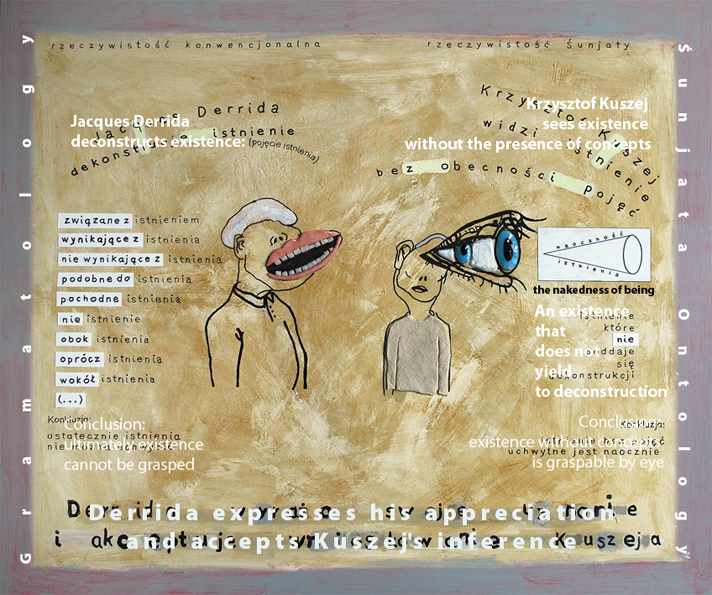 Gramatology
Śunjata Ontology
rzeczywistość konwencjonalna
rzeczywistość Śunjaty
Jacques Derrida
dekonstruuje istnienie
(pojęcie istnienia)
Jacques Derrida
deconstructs existence:
Krzysztof Kuszej
widzi istnienie
bez obecności pojęć
Krzysztof Kuszej
sees existence
without the presence of concepts
związane z istnieniem
wynikające z istnienia
nie wynikające z istnienia
podobne do istnienia
pochodne istnienia
nie istnienie
obok istnienia
oprócz istnienia
wokół istnienia
(...)
naoczność
istnienia
the nakedness of being
istnienie
które
nie
poddaje
się
dekonstrukcji
An existence
that
does not
yield
to deconstruction
Konkluzja:
ostatecznie istnienia
nie
Conclusion:
ultimately existence
cannot be grasped
Konkluzja:
istnienie bez pojęć
uchwytne jest naocznie
Conclusion:
existence without concepts
is graspable by eye
Derrida wyraża swoje uznanie
i akceptuje wnioskowanie Kuszeja
Derrida expresses his appreciation
and accepts Kuszej's inference